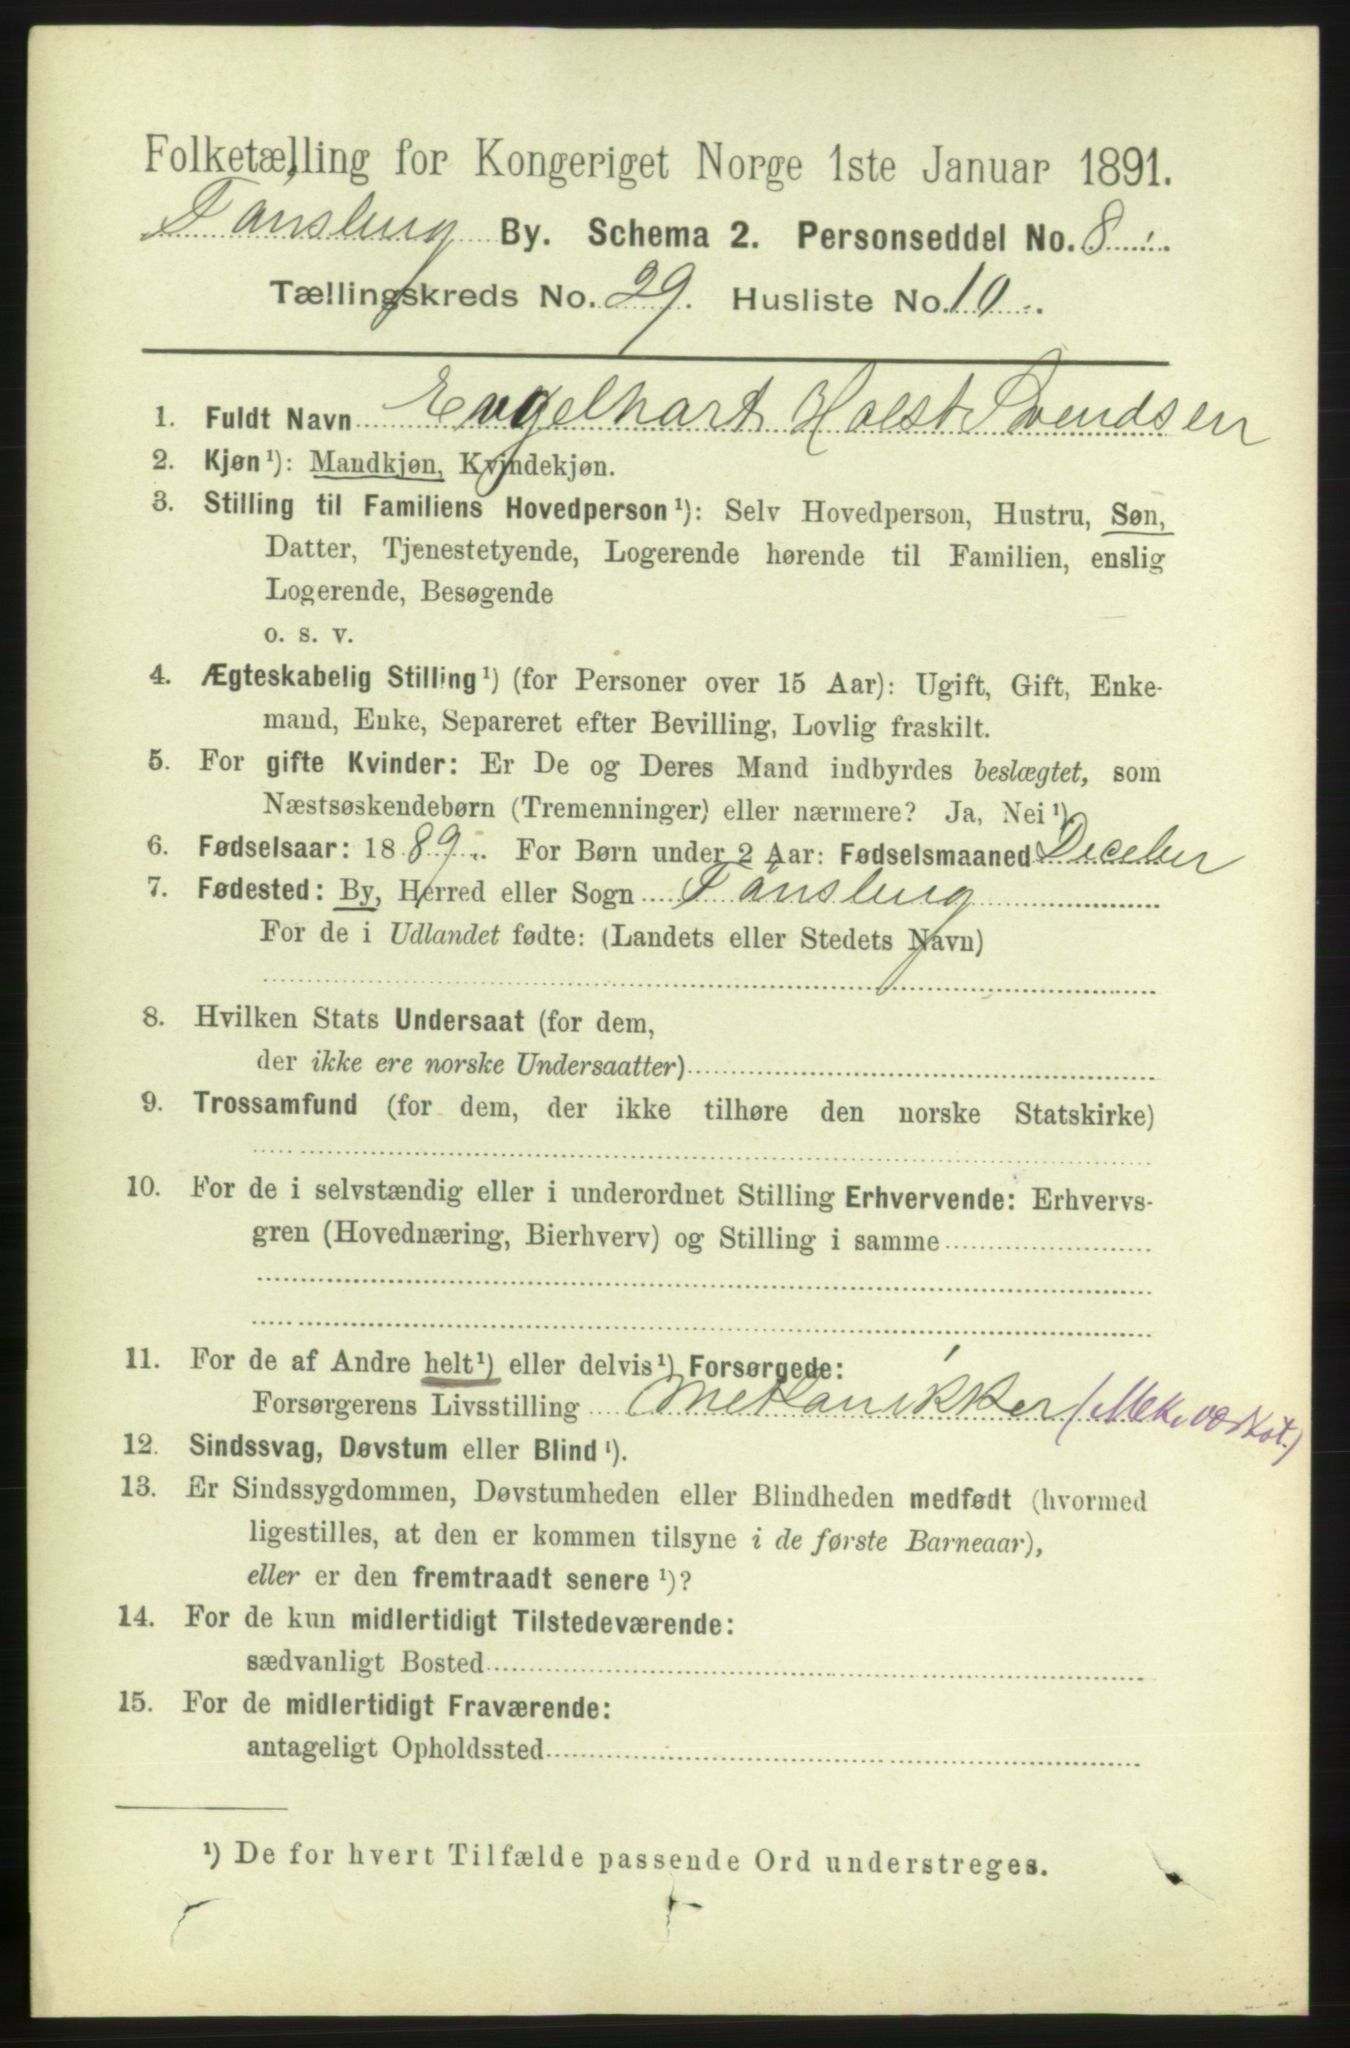 Folketælling for Kongeriget Norge 1ste Januar 1891.
Tønsberg By. Schema 2. Personseddel No. 8
Tællingskreds No. 29. Husliste No. 10
1. Fuldt Navn Engelhart Holst Svendsen
2. Kjøn¹): Mandkjøn, Kvindekjøn.
3. Stilling til Familiens Hovedperson¹): Selv Hovedperson, Hustru, Søn,
Datter, Tjenestetyende, Logerende hørende til Familien, enslig
Logerende, Besøgende
o. s. v.
4. Ægteskabelig Stilling¹) (for Personer over 15 Aar): Ugift, Gift, Enke-
mand, Enke, Separeret efter Bevilling, Lovlig fraskilt.
5. For gifte Kvinder: Er De og Deres Mand indbyrdes beslægtet, som
Næstsøskendebørn (Tremenninger) eller nærmere? Ja, Nei¹)
6. Fødselsaar: 1889. For Børn under 2 Aar: Fødselsmaaned Deceber
7. Fødested: By, Herred eller Sogn Tønsberg
For de i Udlandet fødte: (Landets eller Stedets Navn)
8. Hvilken Stats Undersaat (for dem,
der ikke ere norske Undersaatter)
9. Trossamfund (for dem, der ikke tilhøre den norske Statskirke)
10. For de i selvstændig eller i underordnet Stilling Erhvervende: Erhvervs-
gren (Hovednæring, Bierhverv) og Stilling i samme
11. For de af Andre helt¹) eller delvis¹) Forsørgede:
Forsørgerens Livsstilling Mekanikker (Mek. værkst.)
12. Sindssvag, Døvstum eller Blind¹).
13. Er Sindssygdommen, Døvstumheden eller Blindheden medfødt (hvormed
ligestilles, at den er kommen tilsyne i de første Barneaar),
eller er den fremtraadt senere¹)?
14. For de kun midlertidigt Tilstedeværende:
sædvanligt Bosted
15. For de midlertidigt Fraværende:
antageligt Opholdssted
¹) De for hvert Tilfælde passende Ord understreges.